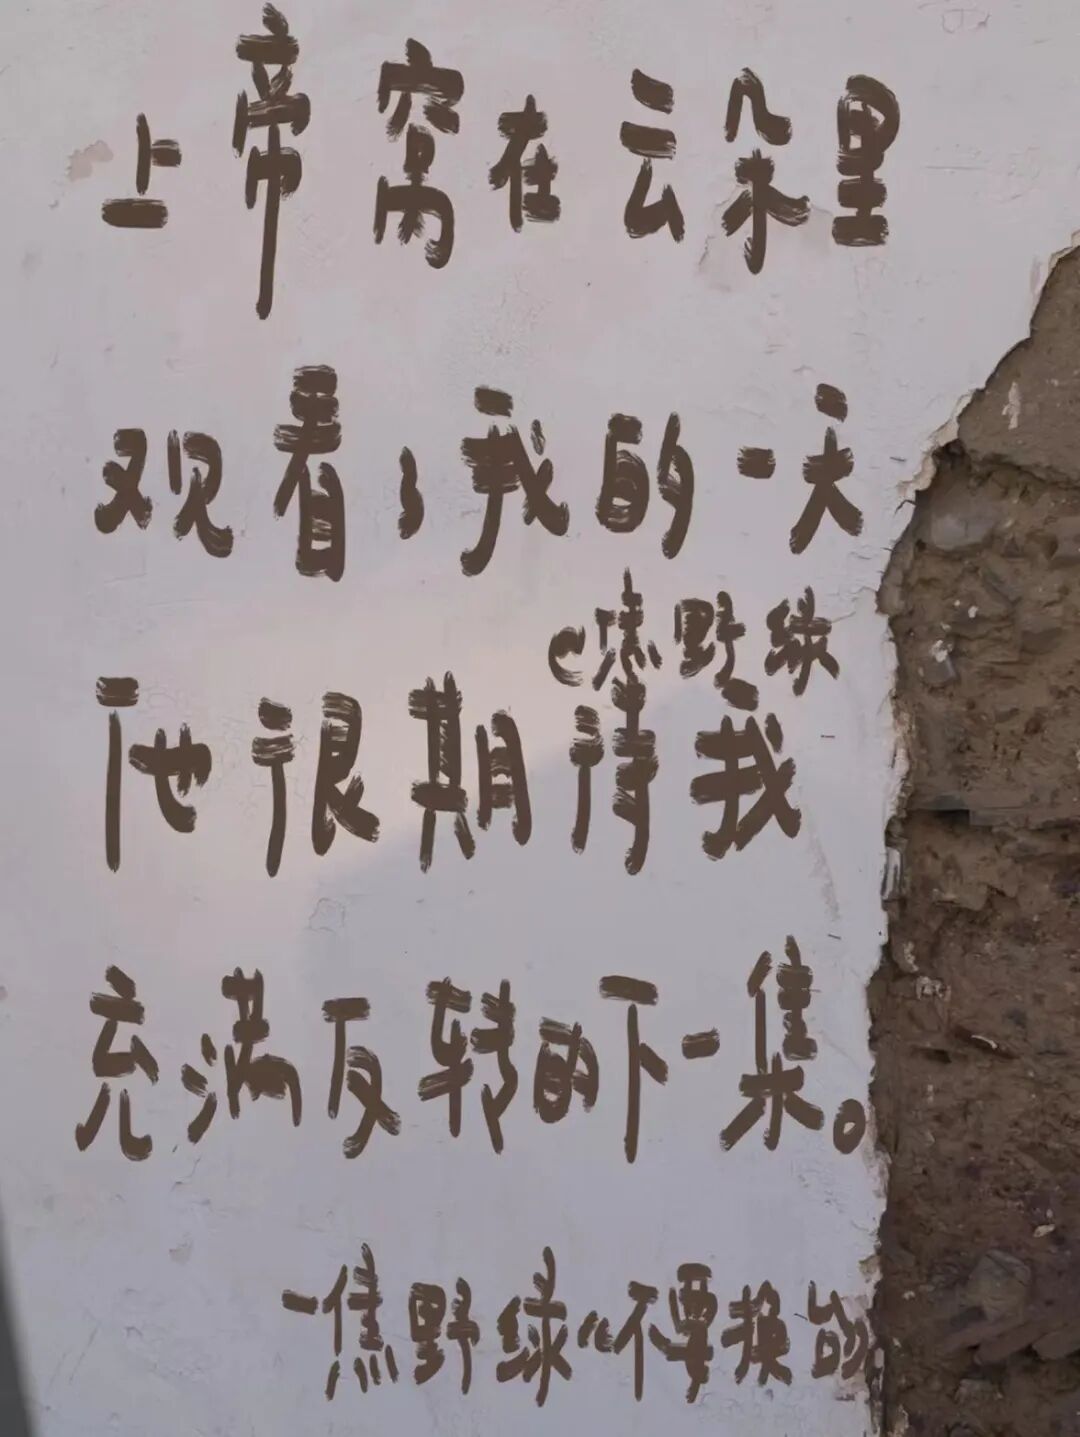 上帝窝在云朵里
观看了我的一天
@焦野绿
他很期待我
充满反转的下一集。
一焦野绿“不要换台